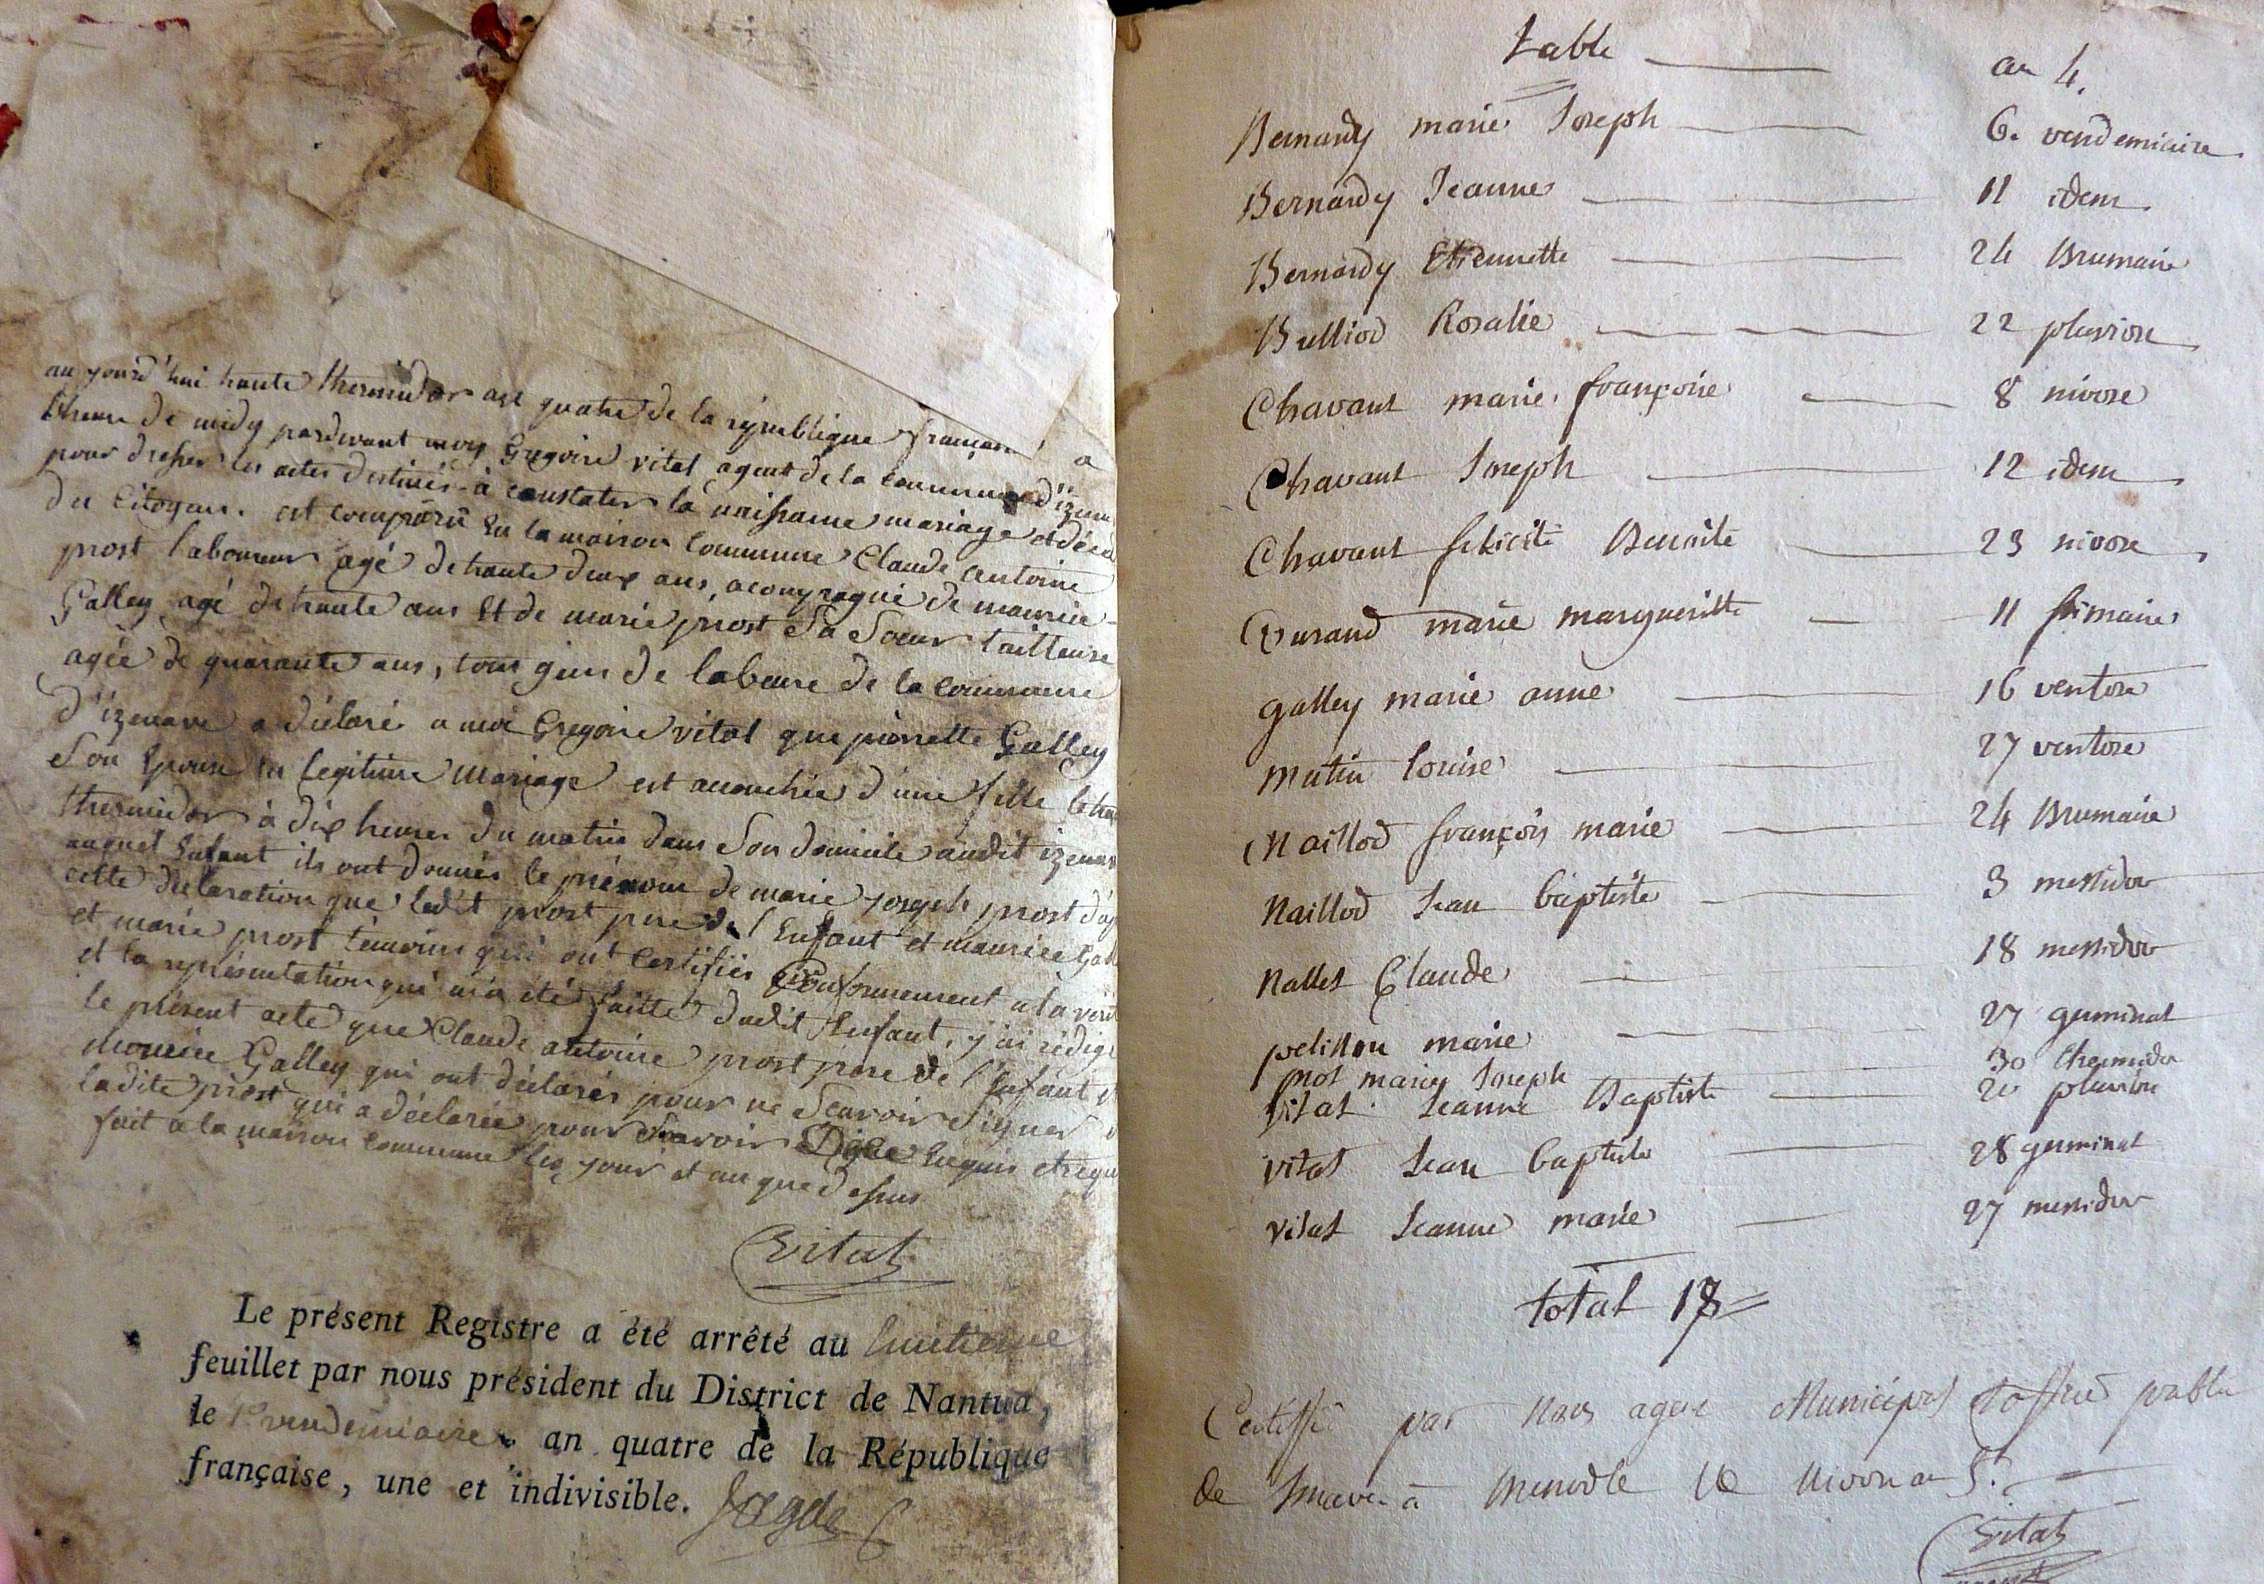 aujourd'hui trente thermidor an quatre de la république française, a
l'heure de midy pardevant moy Gregoire vital agent de la commune d'izenave
pour dresser les actes destinés à constater la naissance mariage et décé
du Citoyens. est comparu en la maison commune Claude antoine
prost laboureur agé de trante deux ans, acompagné de maurice
Galley agé de trante ans et de marie prost sa soeur tailleuse
agée de quarante ans, tous gens de laboure de la commune
d'izenave a déclaré a moi Gregoire vital que pierrette Galley
son Epouse en legitime mariage est acouchée d'une fille le
thermidor à dix heures du matin dans son domicile audit izenave
auquel Enfant ils ont donnés le prénom de marie joseph prost
cette declaration que ledit prost pere de l'Enfant et maurice
et marie prost temoins qui ont certifiés Conformement a la
et la représentation qui m'a été faitte dudit Enfant, j'ai rédigé
le présent acte que Claude antoine prost pere de l'Enfant et
maurice Galley qui ont déclarés pour ne scavoir signer
ladite prost qui a déclarée pour scavoir Enquis et requis
fait a la maison commune les jour et an que dessus
vital
Le présent Registre a été arrêté au huitieme
feuillet par nous président du District de Nantua,
le 1er vendemiaire an quatre de la République
française, une et indivisible.
table an 4.
Bernardy marie Joseph 6. vendemiaire
Bernardy Jeanne 11 idem
Bernardy Etiennette 24 Brumaire
Bulliod Rosalie 22 pluviose
Chavant marie françoise 8 nivose
Chavant Joseph 12 idem
Chavant felicité Benoite 23 nivose
Durand marie margueritte 11 frimaire
galley marie anne 16 ventose
mutin louise 27 ventose
Naillod françois marie 24 Brumaire
Naillod Jean baptiste 3 messidor
Nallet Claude 18 messidor
pelisson marie 27 germinal
prot marie Joseph 30 thermidor
vital Jeanne Baptiste 20 pluviose
vital Jean baptiste 28 germinal
vital Jeanne marie 27 messidor
total 18
Certiffié par Nous agent Municipal Ef officié public
de à le nivose an 5.
vital